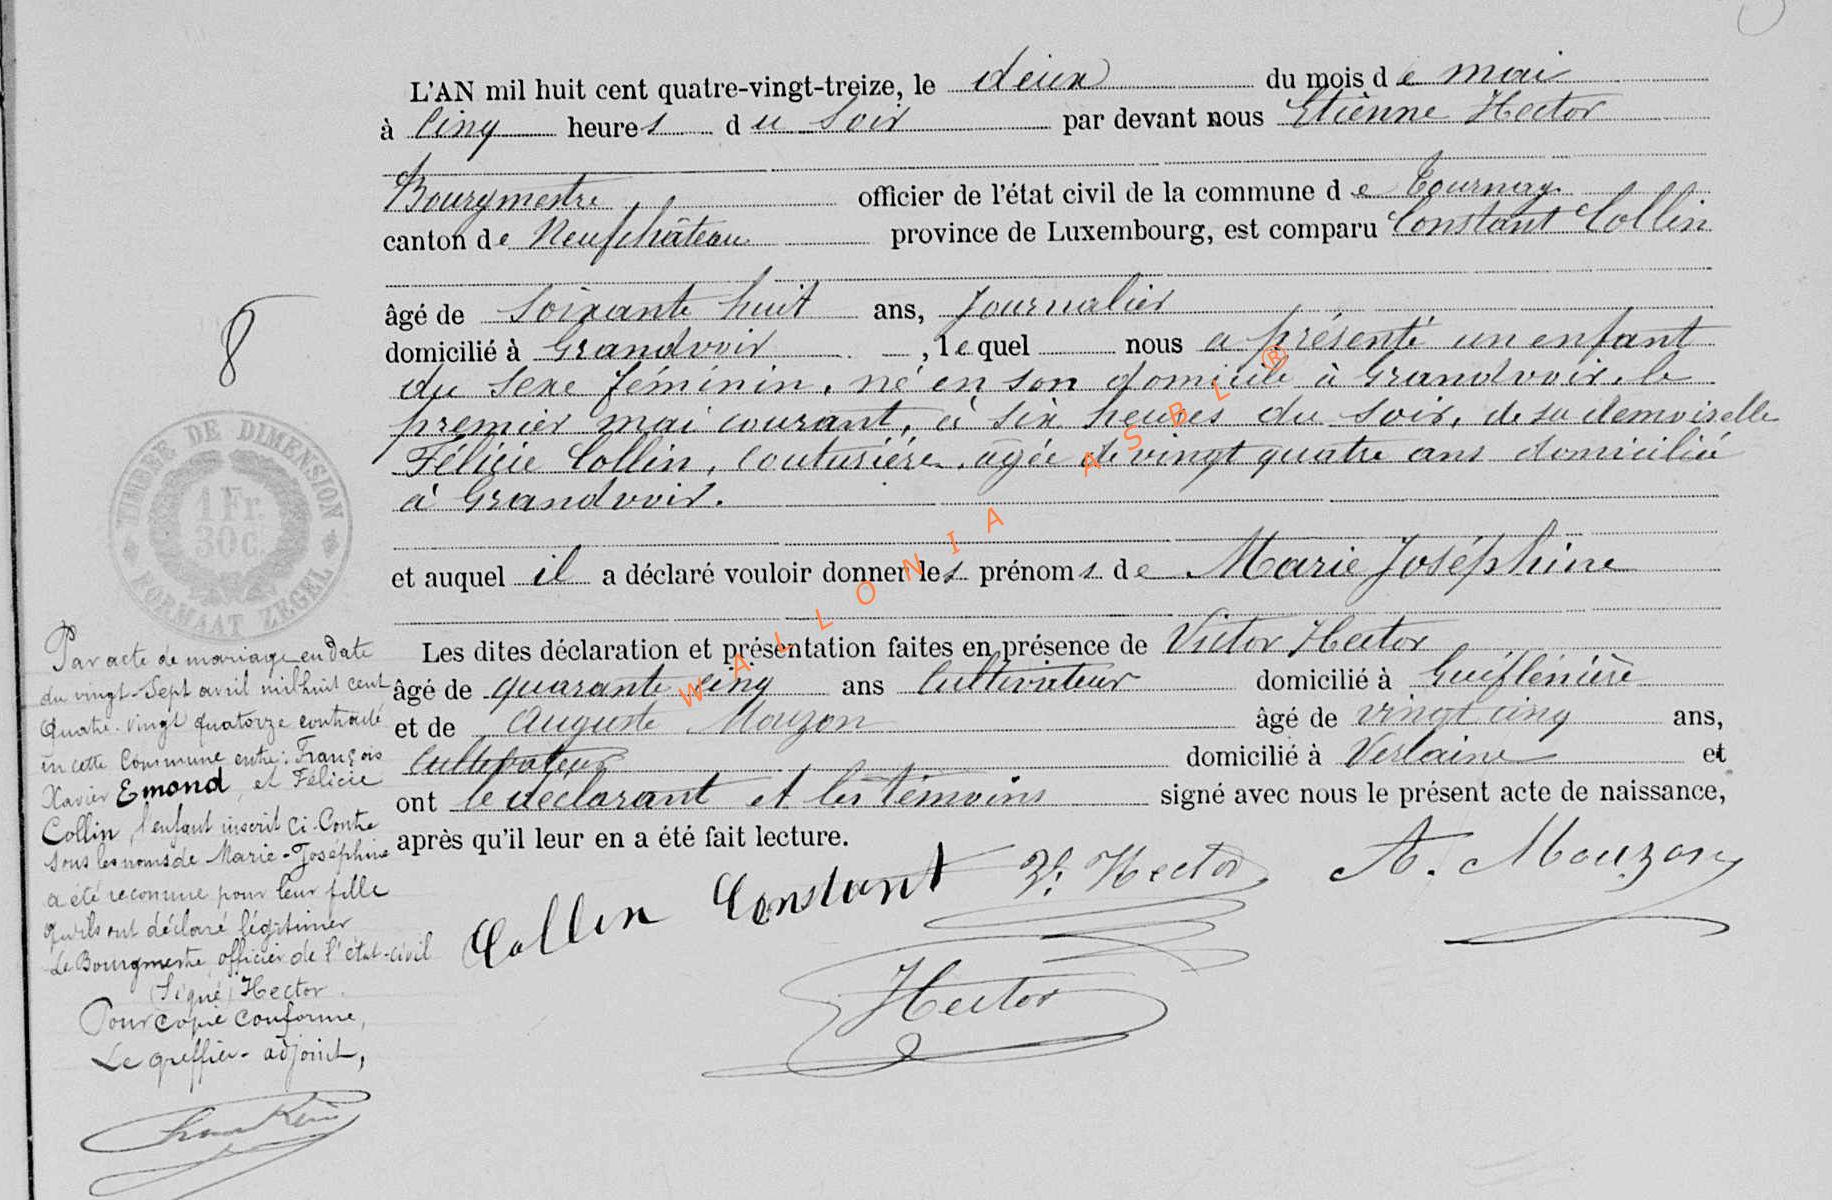 L'AN mil huit cent quatre-vingt-treize, le deux du mois de mai
à cinq heures du soir par devant nous Etienne Hector
Bourgmestre officier de l'état civil de la commune de Tournay
canton de Neufchâteau province de Luxembourg, est comparu Constant Collin
âgé de soixante huit ans, Journalier
domicilié à Grandvoir, lequel nous a présenté un enfant
du sexe féminin, né en son domicile à Grandvoir, le
premier mai courant, à six heures du soir, de sa demoiselle
Félicie Collin, couturière, âgée de vingt quatre ans domiciliée
à Grandvoir.
et auquel il a déclaré vouloir donner les prénoms de Marie Joséphine
Les dites déclaration et présentation faites en présence de Victor Hector
âgé de quarante cinq ans cultivateur domicilié à
et de Auguste Mouzon âgé de vingt cinq ans,
cultivateur domicilié à Verlaine et
ont le déclarant et les témoins signé avec nous le présent acte de naissance,
après qu'il leur en a été fait lecture.
Collin Constant V. Hector A. Mouzon
Hector
8
TIMBRE DE DIMENSION
1 Fr.
30c
FORMAAT ZEGEL
Par acte de mariage en date
du vingt-sept avril mil huit cent
quatre-vingt quatorze contracté
en cette Commune entre: François
Xavier Emond, et Félicie
Collin, l'enfant inscrit ci-Contre
sous les noms de Marie-Joséphine
a été reconnue pour leur fille
qu'ils ont déclaré légitimer
Le Bourgmestre officier de l'état-civil
(Signé) Hector.
Pour copie conforme,
Le greffier-adjoint,
WALLONIA ASBL ®